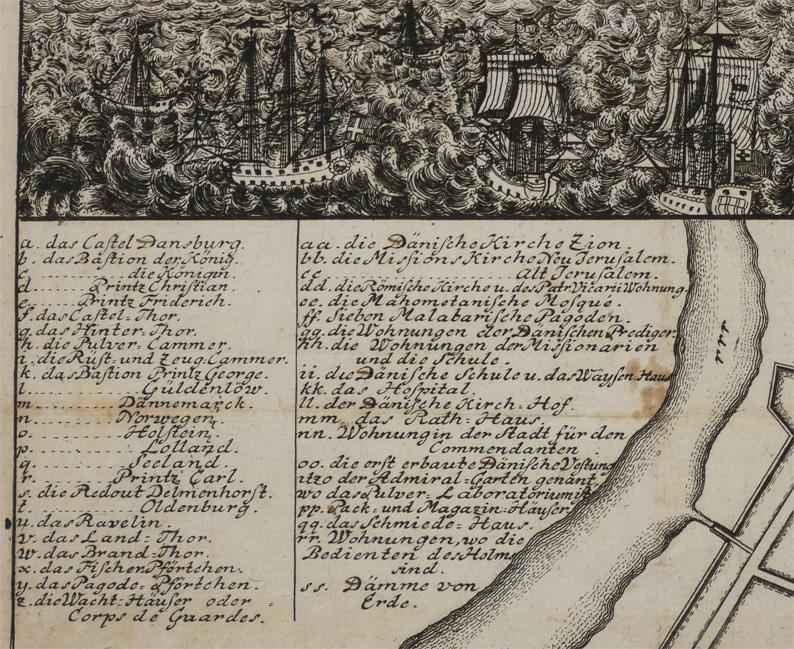 a. das Castel Dansburg.
b. das Bastion der König.
c. ............ die Königin.
d. ........ Printz Christian.
e. ........ Printz Friderich.
f. das Castel-Thor.
g. das Hinter-Thor.
h. die Pulver-Cammer.
i. die Rüst- und Zeug-Cammer.
k. das Bastion Printz George.
l. ............ Güldenlöw.
m. ............ Dännemarck.
n. ............ Norwegen.
o. ............ Holstein.
p. ............ Lolland.
q. ............ Seeland.
r. ............ Printz Carl.
s. die Redout Delmenhorst.
t. ............ Oldenburg.
u. das Ravelin.
v. das Land-Thor.
w. das Brand-Thor.
x. das Fischer Pförtchen.
y. das Pagode-Pförtchen.
z. die Wacht-Häuser oder
Corps de Guardes.
aa. die Dänische Kirche Zion.
bb. die Missions Kirche Neu Jerusalem.
cc ............ Alt Jerusalem.
dd. die Römische Kirche u. des Patr Vicarii Wohnung.
ee. die Mahometanische Mosqué.
ff. Sieben Malabarische Pagoden.
gg. die Wohnungen der Dänischen Prediger.
hh. die Wohnungen der Missionarien
und die Schule.
ii. die Dänische Schule u. das Wäysen-Haus
kk. das Hospital.
ll. der Dänische Kirch-Hof.
mm. das Rath-Haus.
nn. Wohnung in der Stadt für den
Commendanten.
oo. die erst erbaute Dänische Vestung
itzo der Admiral-Garten genant,
wo das Pulver-Laboratorium ist
pp. Pack- und Magazin-Häuser
qq. das Schmiede-Haus.
rr. Wohnungen, wo die
Bedienten des Holms
sind.
ss. Dämme von
Erde.
rrr